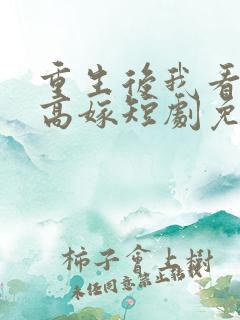 重生後我看
高嫁短劇免
柿子會上樹
未任同意禁止转载